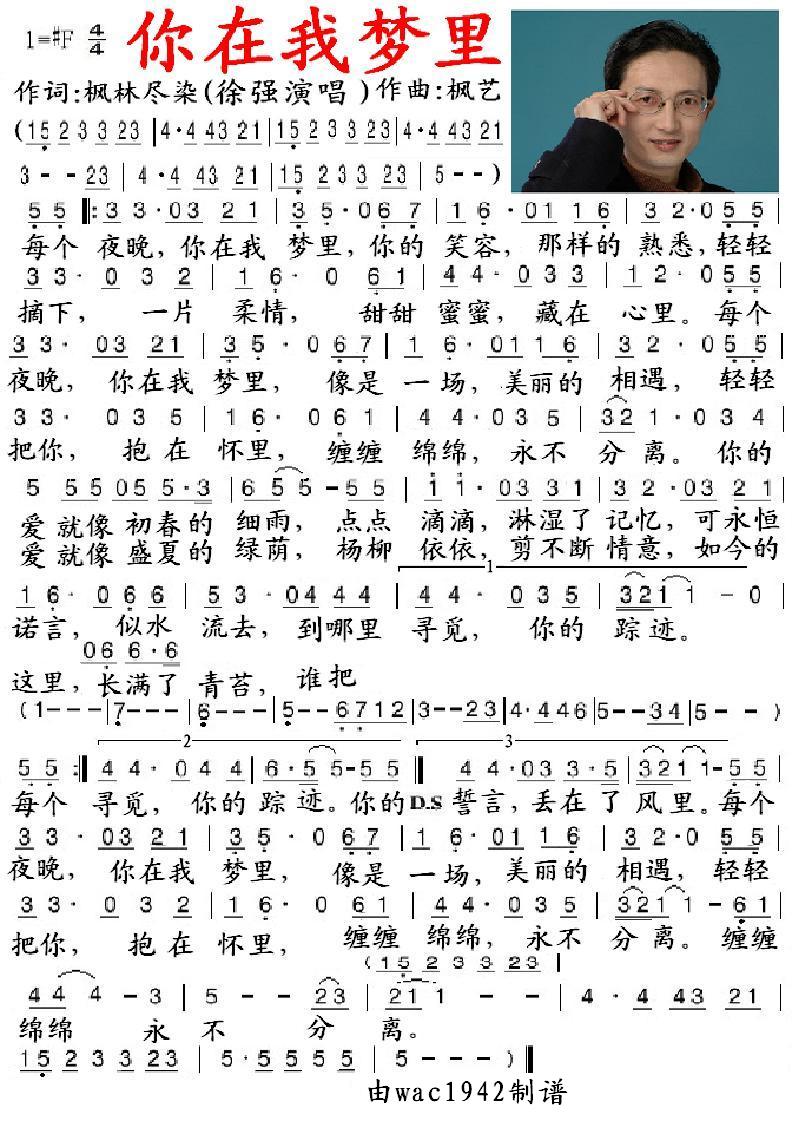 1=#F 4/4 你在我梦里
作词:枫林尽染(徐强演唱)作曲:枫艺
(15 2 3 3 23 | 4·4 43 21 | 15 2 3 3 23 | 4·4 43 21
3 - - 23 | 4·4 43 21 | 15 2 3 3 23 | 5 - - )
5 5 ‖: 3 3·03 2 1 | 3 5·06 7 | 1 6·01 1 6 | 3 2·0 5 5
每个 夜晚,你在我 梦里,你的 笑容,那样的 熟悉,轻轻
3 3· 0 3 2 | 1 6· 0 6 1 | 4 4· 0 3 5 | 1 2· 0 5 5
摘下, 一片 柔情, 甜甜 蜜蜜,藏在 心里。每个
3 3· 03 21 | 3 5· 0 6 7 | 1 6·01 1 6 | 3 2·0 5 5
夜晚, 你在我 梦里, 像是 一场,美丽的 相遇, 轻轻
3 3· 0 3 5 | 1 6· 0 6 1 | 4 4·0 3 5 | 32 1·0 3 4
把你, 抱在 怀里, 缠缠 绵绵,永不 分离。你的
5 55 05 5·3 | 6 5 5 - 5 5 | 1 1·03 31 | 3 2·03 2 1
爱就像初春的 细雨, 点点 滴滴,淋湿了 记忆,可永恒
爱就像盛夏的 绿荫, 杨柳 依依,剪不断 情意,如今的
1
1 6· 0 6 6 | 5 3·04 4 4 | 4 4·0 3 5 | 321 1 - 0
诺言, 似水 流去,到哪里 寻觅, 你的 踪迹。
06 6·6
这里,长满了 青苔, 谁把
(1--- | 7--- | 6--- | 5--6712 | 3--23 | 4·446 | 5--34 | 5-- )
2 3
5 5 :‖ 4 4· 0 4 4 | 6·5 5 - 5 5 ‖ 4 4·03 3·5 | 321 1 - 5 5
每个 寻觅, 你的踪 迹。你的D.S 誓言,丢在了风里。每个
3 3· 03 2 1 | 3 5· 0 6 7 | 1 6·01 1 6 | 3 2·0 5 5
夜晚, 你在我 梦里, 像是 一场,美丽的 相遇, 轻轻
3 3· 0 3 2 | 1 6· 0 6 1 | 4 4·0 3 5 | 321 1 - 6 1
把你, 抱在 怀里, 缠缠 绵绵,永不 分离。缠缠
(15 2 3 3 23 |
4 4 4 - 3 | 5 - - 23 | 21 1 - - | 4·4 43 21
绵绵 永 不 分 离。
15 2 3 3 23 | 5·5 5 5 5 | 5 - - ) ‖
由wac1942制谱